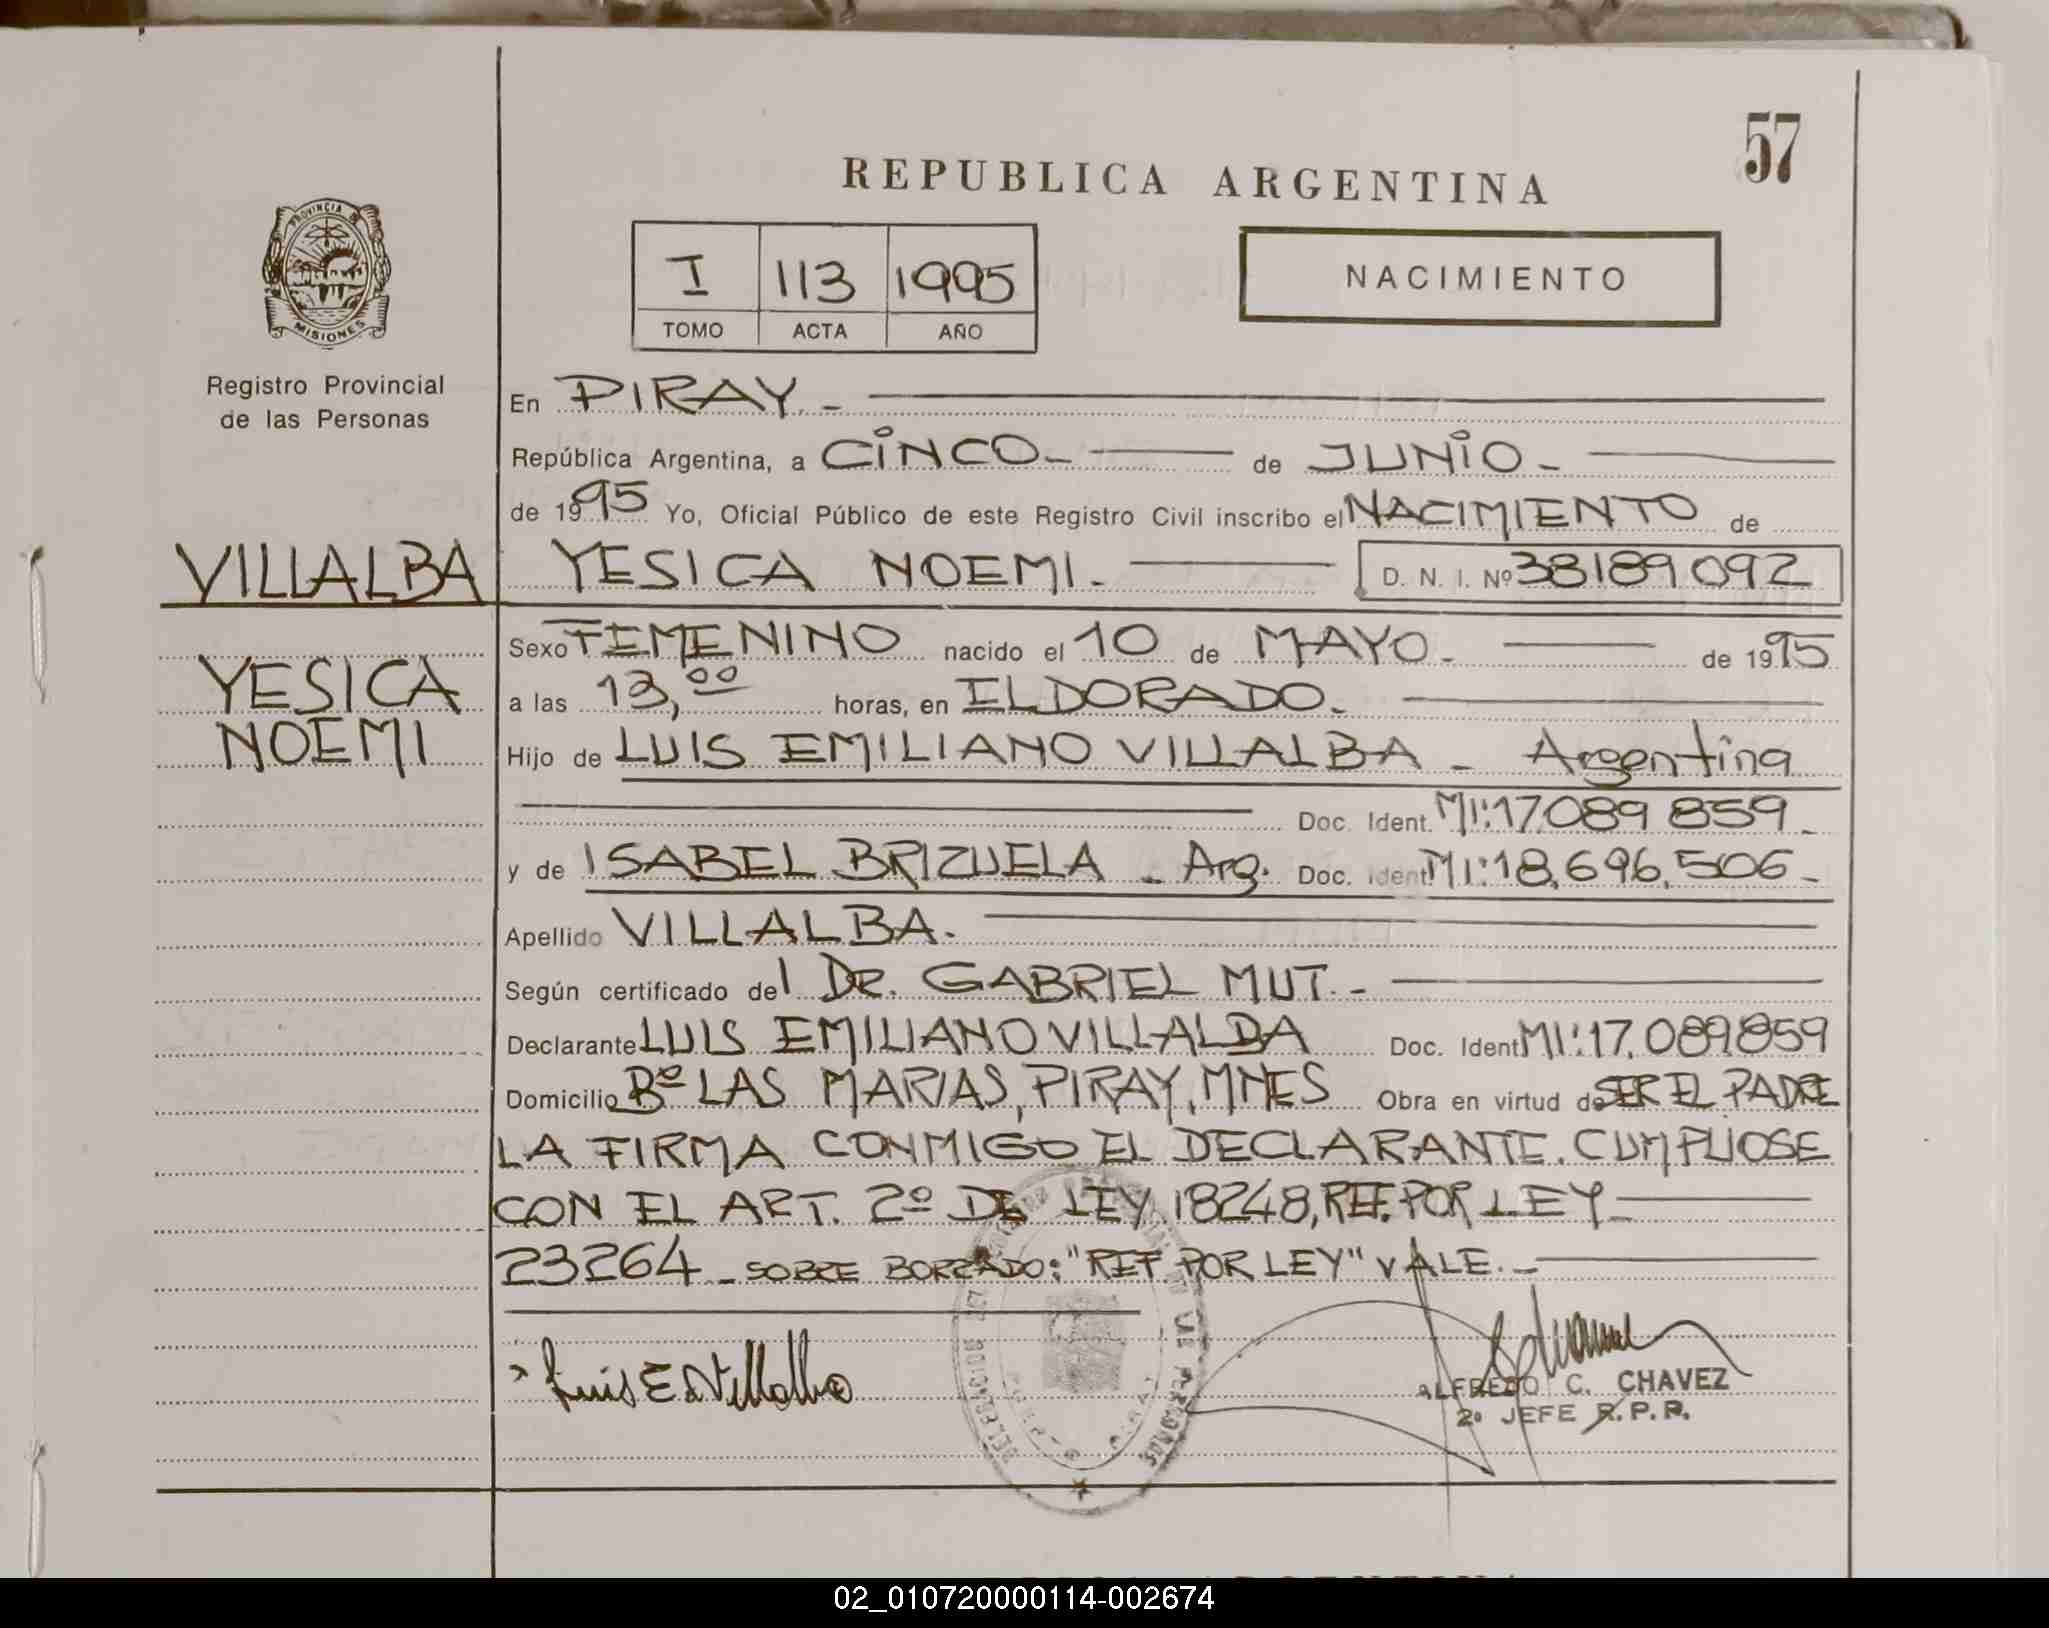 57
REPUBLICA ARGENTINA
PROVINCIA DE
MISIONES
Registro Provincial
de las Personas
I 113 1995
TOMO ACTA AÑO
NACIMIENTO
En PIRAY.-
República Argentina, a CINCO.- de JUNIO.-
de 1995 Yo, Oficial Público de este Registro Civil inscribo el NACIMIENTO de
VILLALBA YESICA NOEMI.- D. N. I. Nº 38189092
YESICA
NOEMI
Sexo FEMENINO nacido el 10 de MAYO.- de 1995
a las 13,00 horas, en ELDORADO.-
Hijo de LUIS EMILIANO VILLALBA - Argentina
Doc. Ident. MI:17.089 859.-
y de ISABEL BRIZUELA - Arg. Doc. Ident. MI:18.696.506.-
Apellido VILLALBA.
Según certificado del DR. GABRIEL MUT.-
Declarante LUIS EMILIANO VILLALBA Doc. Ident. MI:17.089859
Domicilio Bº LAS MARIAS, PIRAY, MNES Obra en virtud de SER EL PADRE
LA FIRMA CONMIGO EL DECLARANTE. CUMPLIOSE
CON EL ART. 2º DE LEY 18248, REF. POR LEY
23264 - SOBRE BORRADO: "REF. POR LEY" VALE.-
Luis E Villalba
ALFREDO C. CHAVEZ
2º JEFE R.P.P.
02_010720000114-002674